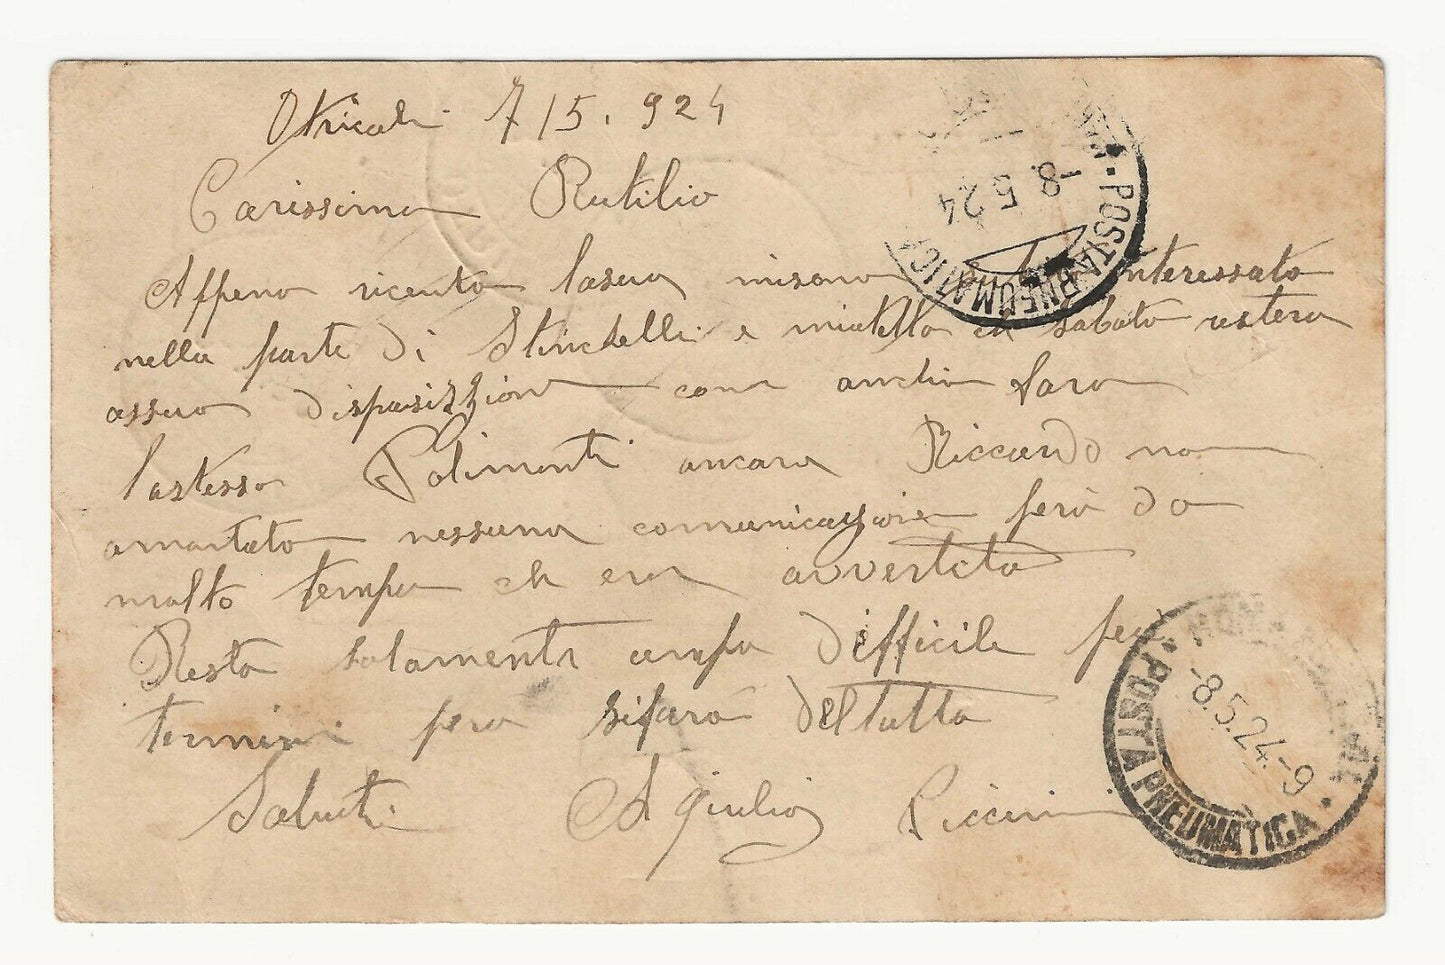 Otricoli 7/5. 924
Carissimo Rutilio
Appena ricento lascia misono interessato
nella parte di Stinchelli e miatello ch sabato restera
assua disposizzione come anchio faro
lastesso Polimanti ancora Riccardo non
amantato nessuna comunicazzione però da
molto tempo ch era avvertito
Resta solamente difficile pei
termini pero sifara deltutto
Saluti Agiulio Piccini
-8.5.24
POSTA PNEUMATICA
-8.5.24.-9
ROMA
POSTA PNEUMATICA